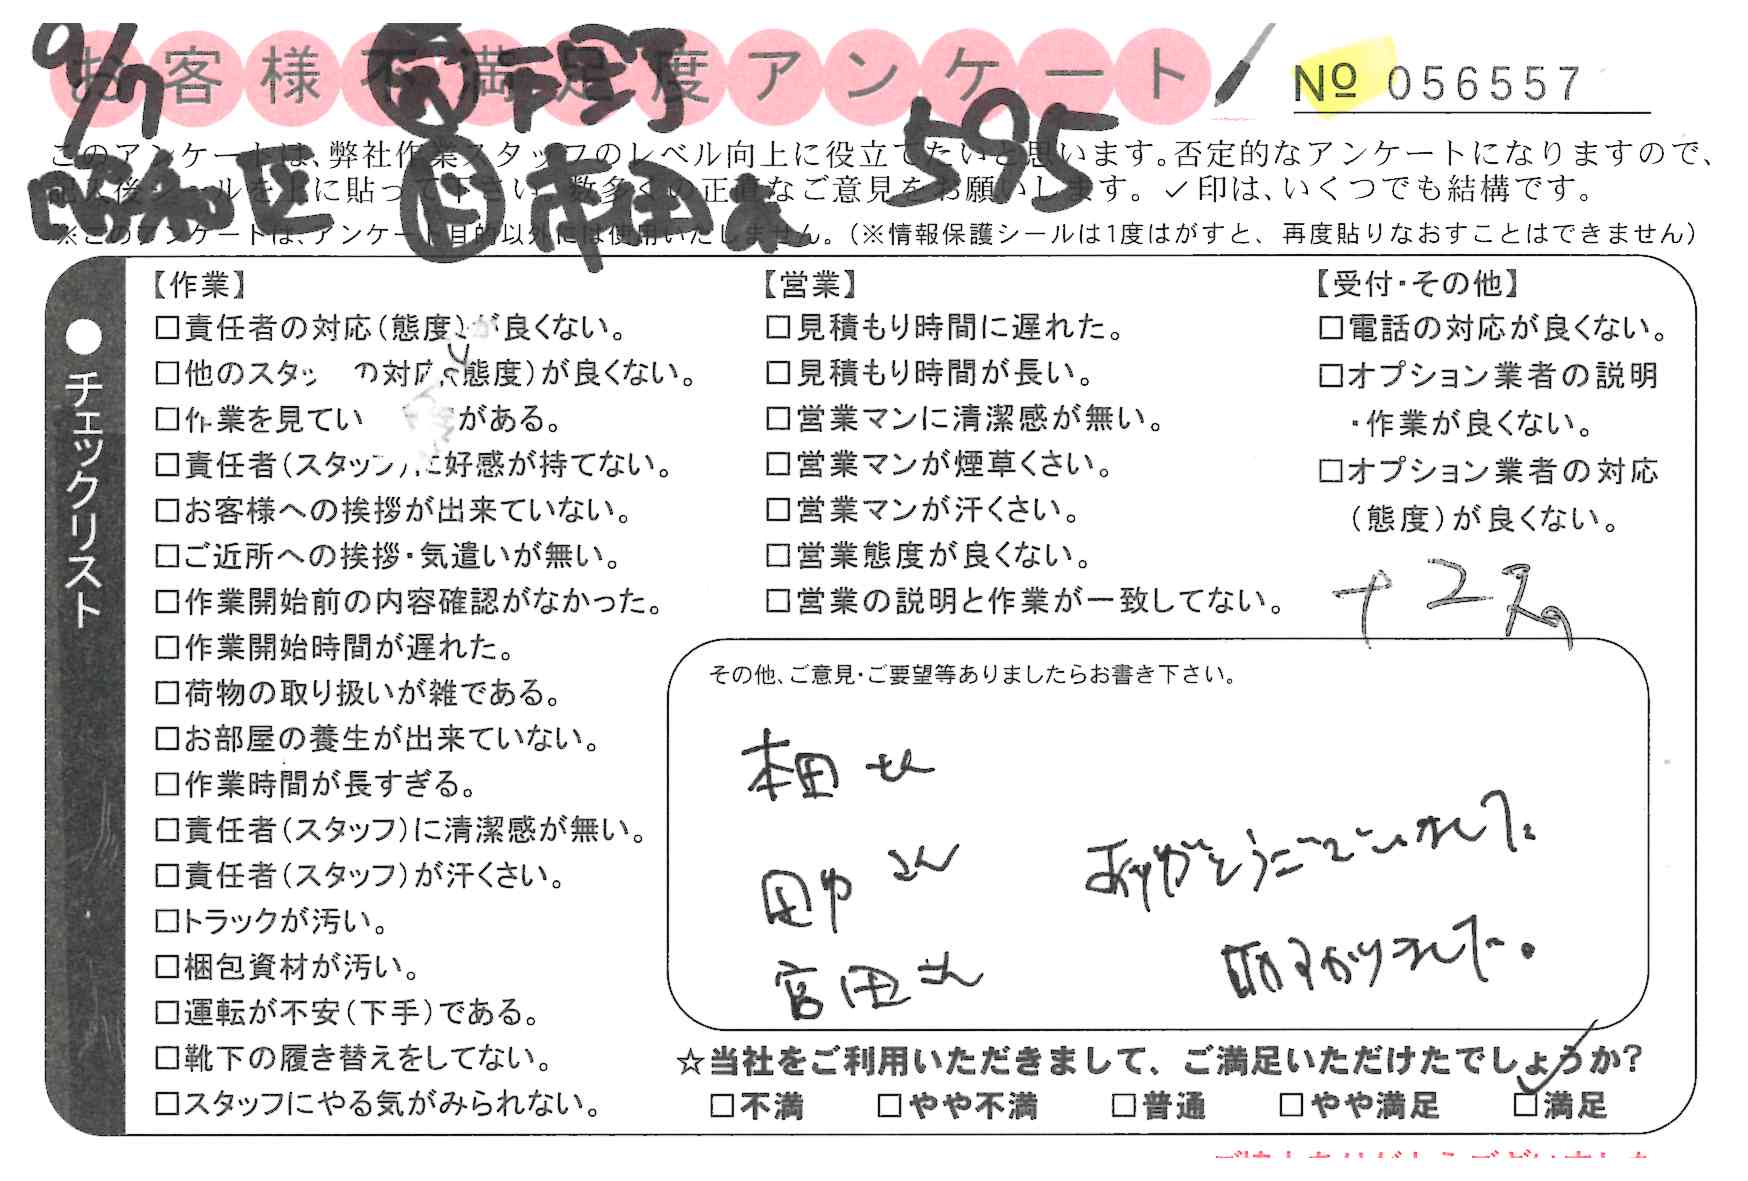 お客様不満足度アンケート
№ 056557
9/7
595
昭和区
このアンケートは、弊社作業スタッフのレベル向上に役立てたいと思います。否定的なアンケートになりますので、
記入後シールを上に貼って下さい。数多くの正直なご意見をお願いします。✓印は、いくつでも結構です。
※このアンケートは、アンケート目的以外には使用いたしません。(※情報保護シールは1度はがすと、再度貼りなおすことはできません)
●チェックリスト
【作業】
□責任者の対応(態度)が良くない。
□他のスタッ の対応(態度)が良くない。
□作業を見てい がある。
□責任者(スタッフ)に好感が持てない。
□お客様への挨拶が出来ていない。
□ご近所への挨拶・気遣いが無い。
□作業開始前の内容確認がなかった。
□作業開始時間が遅れた。
□荷物の取り扱いが雑である。
□お部屋の養生が出来ていない。
□作業時間が長すぎる。
□責任者(スタッフ)に清潔感が無い。
□責任者(スタッフ)が汗くさい。
□トラックが汚い。
□梱包資材が汚い。
□運転が不安(下手)である。
□靴下の履き替えをしてない。
□スタッフにやる気がみられない。
【営業】
□見積もり時間に遅れた。
□見積もり時間が長い。
□営業マンに清潔感が無い。
□営業マンが煙草くさい。
□営業マンが汗くさい。
□営業態度が良くない。
□営業の説明と作業が一致してない。
【受付・その他】
□電話の対応が良くない。
□オプション業者の説明
・作業が良くない。
□オプション業者の対応
(態度)が良くない。
その他、ご意見・ご要望等ありましたらお書き下さい。
本田さん
田中さん
宮田さん
ありがとうございました
助かりました。
☆当社をご利用いただきまして、ご満足いただけたでしょうか?
□不満 □やや不満 □普通 □やや満足 □満足